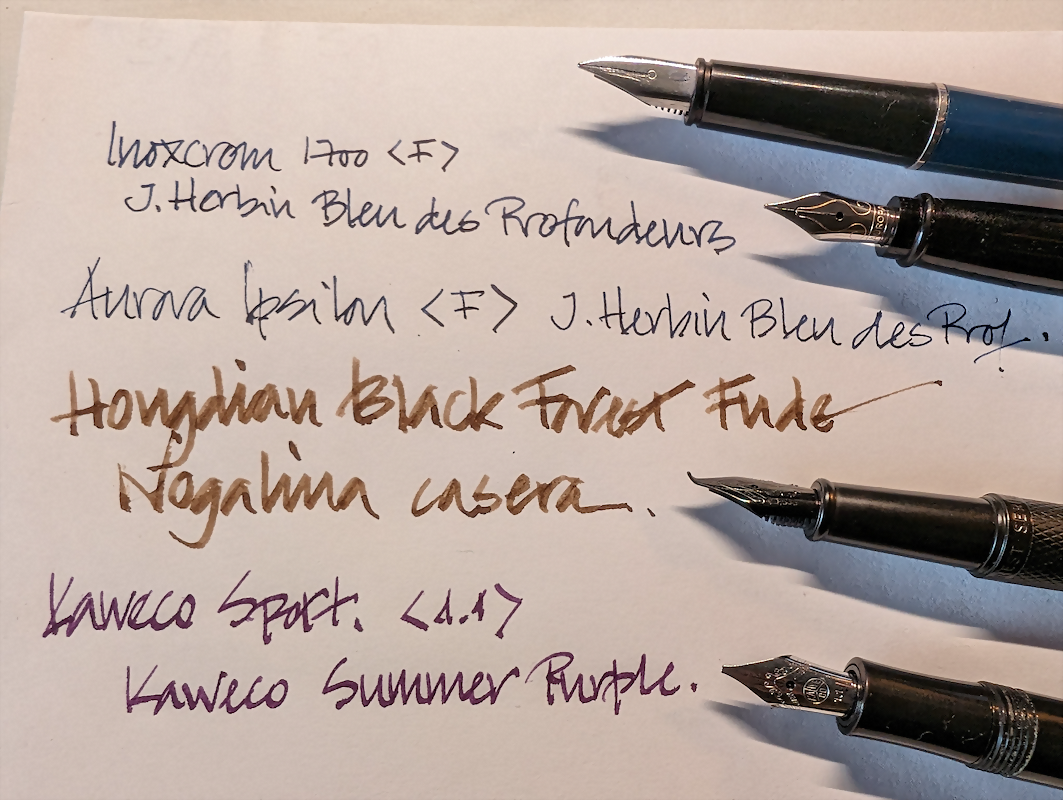 Inoxcrom 1700 <F>
J. Herbin Bleu des Profondeurs
Aurora Ipsilon <F> J. Herbin Bleu des Prof.
Hongdian Black Forest Fude
Nogalina casera.
Kaweco Sport. <1.1>
Kaweco Summer Purple.